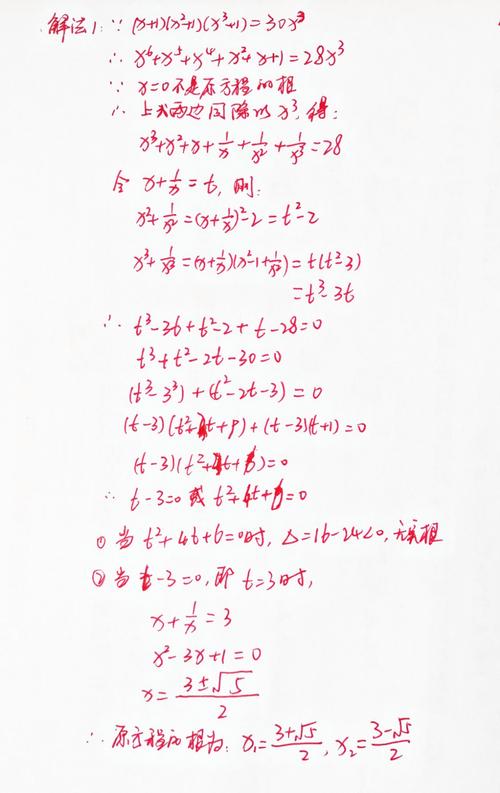 解法1: ∵ (x+1)(x²+1)(x³+1)=30x³
∴ x⁶+x⁵+x⁴+x²+x+1=28x³
∵ x=0不是原方程的根
∴ 上式两边同除以x³, 得:
x³+x²+x+1/x+1/x²+1/x³=28
令 x+1/x=t, 则:
x²+1/x²=(x+1/x)²-2=t²-2
x³+1/x³=(x+1/x)(x²-1+1/x²)=t(t²-3)
=t³-3t
∴ t³-3t+t²-2+t-28=0
t³+t²-2t-30=0
(t³-3³)+(t²-2t-3)=0
(t-3)(t²+t+9)+(t-3)(t+1)=0
(t-3)(t²+4t+)=0
∴ t-3=0 或 t²+4t+=0
① 当 t²+4t+6=0时, Δ=16-24<0, 无实根
② 当 t-3=0, 即 t=3时,
x+1/x=3
x²-3x+1=0
x=(3±√5)/2
∴ 原方程的根为: x₁=(3+√5)/2, x₂=(3-√5)/2